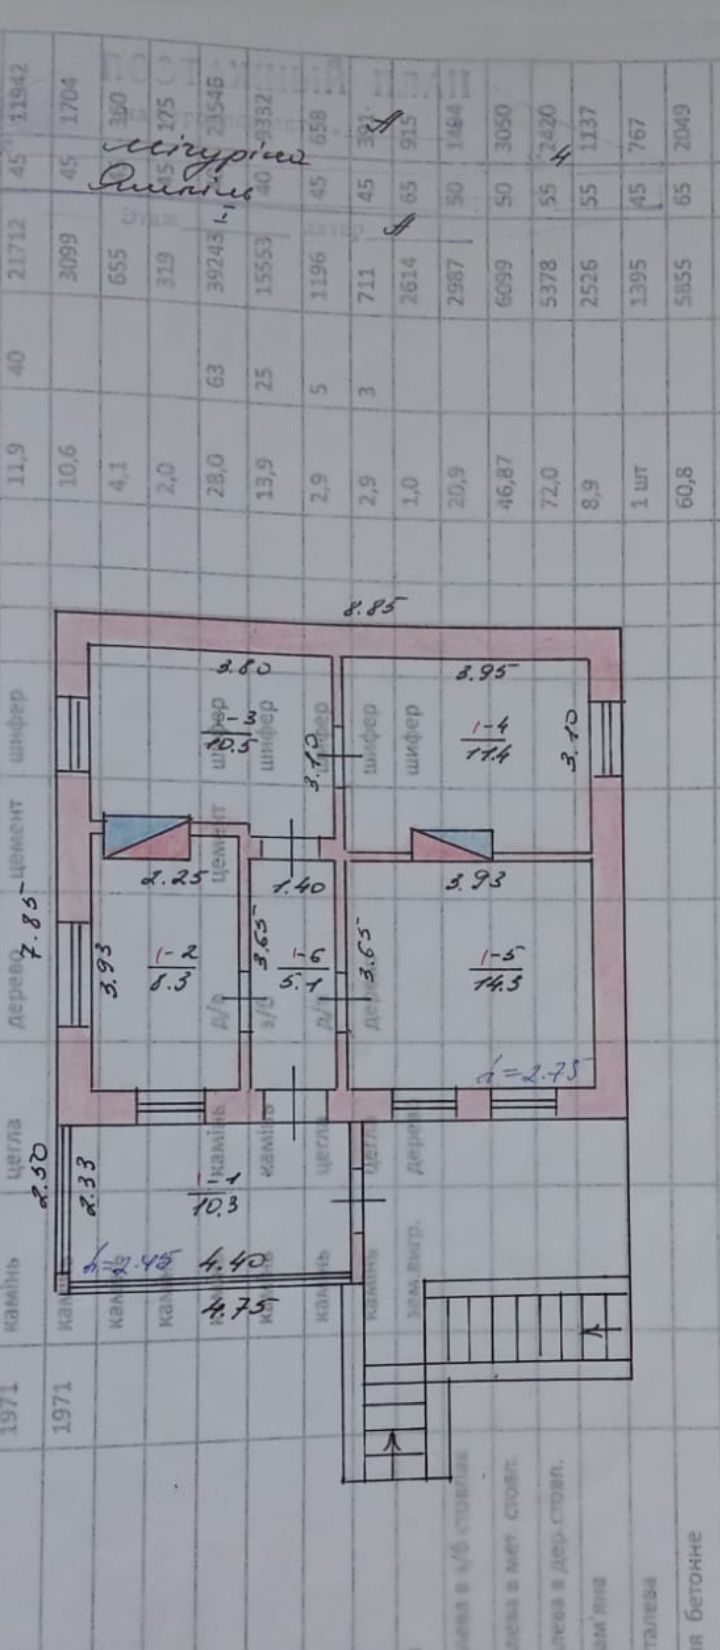 11942 1704 360 175 23546 9332 658 391 915 1484 3050 2420 1137 767 2049
45 45 45 40 45 45 65 50 50 55 55 45 65
Мічуріна
Ямпіль
4
21712 3099 655 319 39243 15553 1196 711 2614 2987 6099 5378 2526 1395 5855
40 63 25 5 3
11,9 10,6 4,1 2,0 28,0 13,9 2,9 2,9 1,0 20,9 46,87 72,0 8,9 1 шт 60,8
8.85
3.80
3.95
1-3
10.5
3.10
1-4
11.4
3.10
шифер шифер шифер шифер шифер шифер
цемент цемент
2.25
1.40
3.93
7.85
3.93
1-2
8.3
3.65
1-6
5.1
3.65
1-5
14.3
дерево д/р з/б д/р дерево
h=2.75
цегла камінь камінь цегла цегла дерево
2.50
2.33
1-1
10.3
h=2.45
4.40
4.75
камінь камінь камінь камінь камінь камінь камінь камінь
1971
1971
в з/б стовпах
в мет. стовп.
в дер.стовп.
бетонне